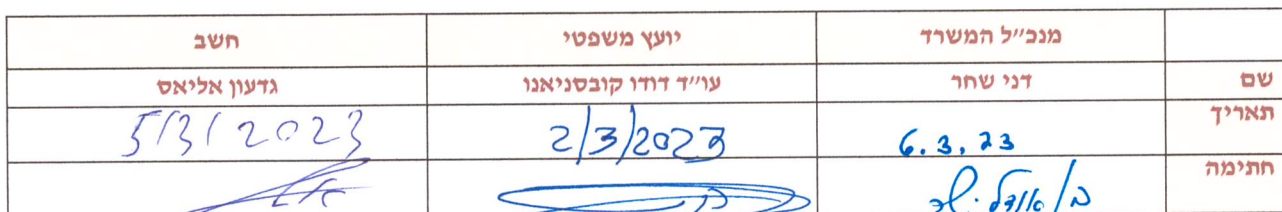 מנכ״ל המשרד יועץ משפטי חשב
שם דני שחר עו״ד דודו קובסניאנו גדעון אליאס
תאריך 6.3.23 2/3/2023 5/3/2023
חתימה